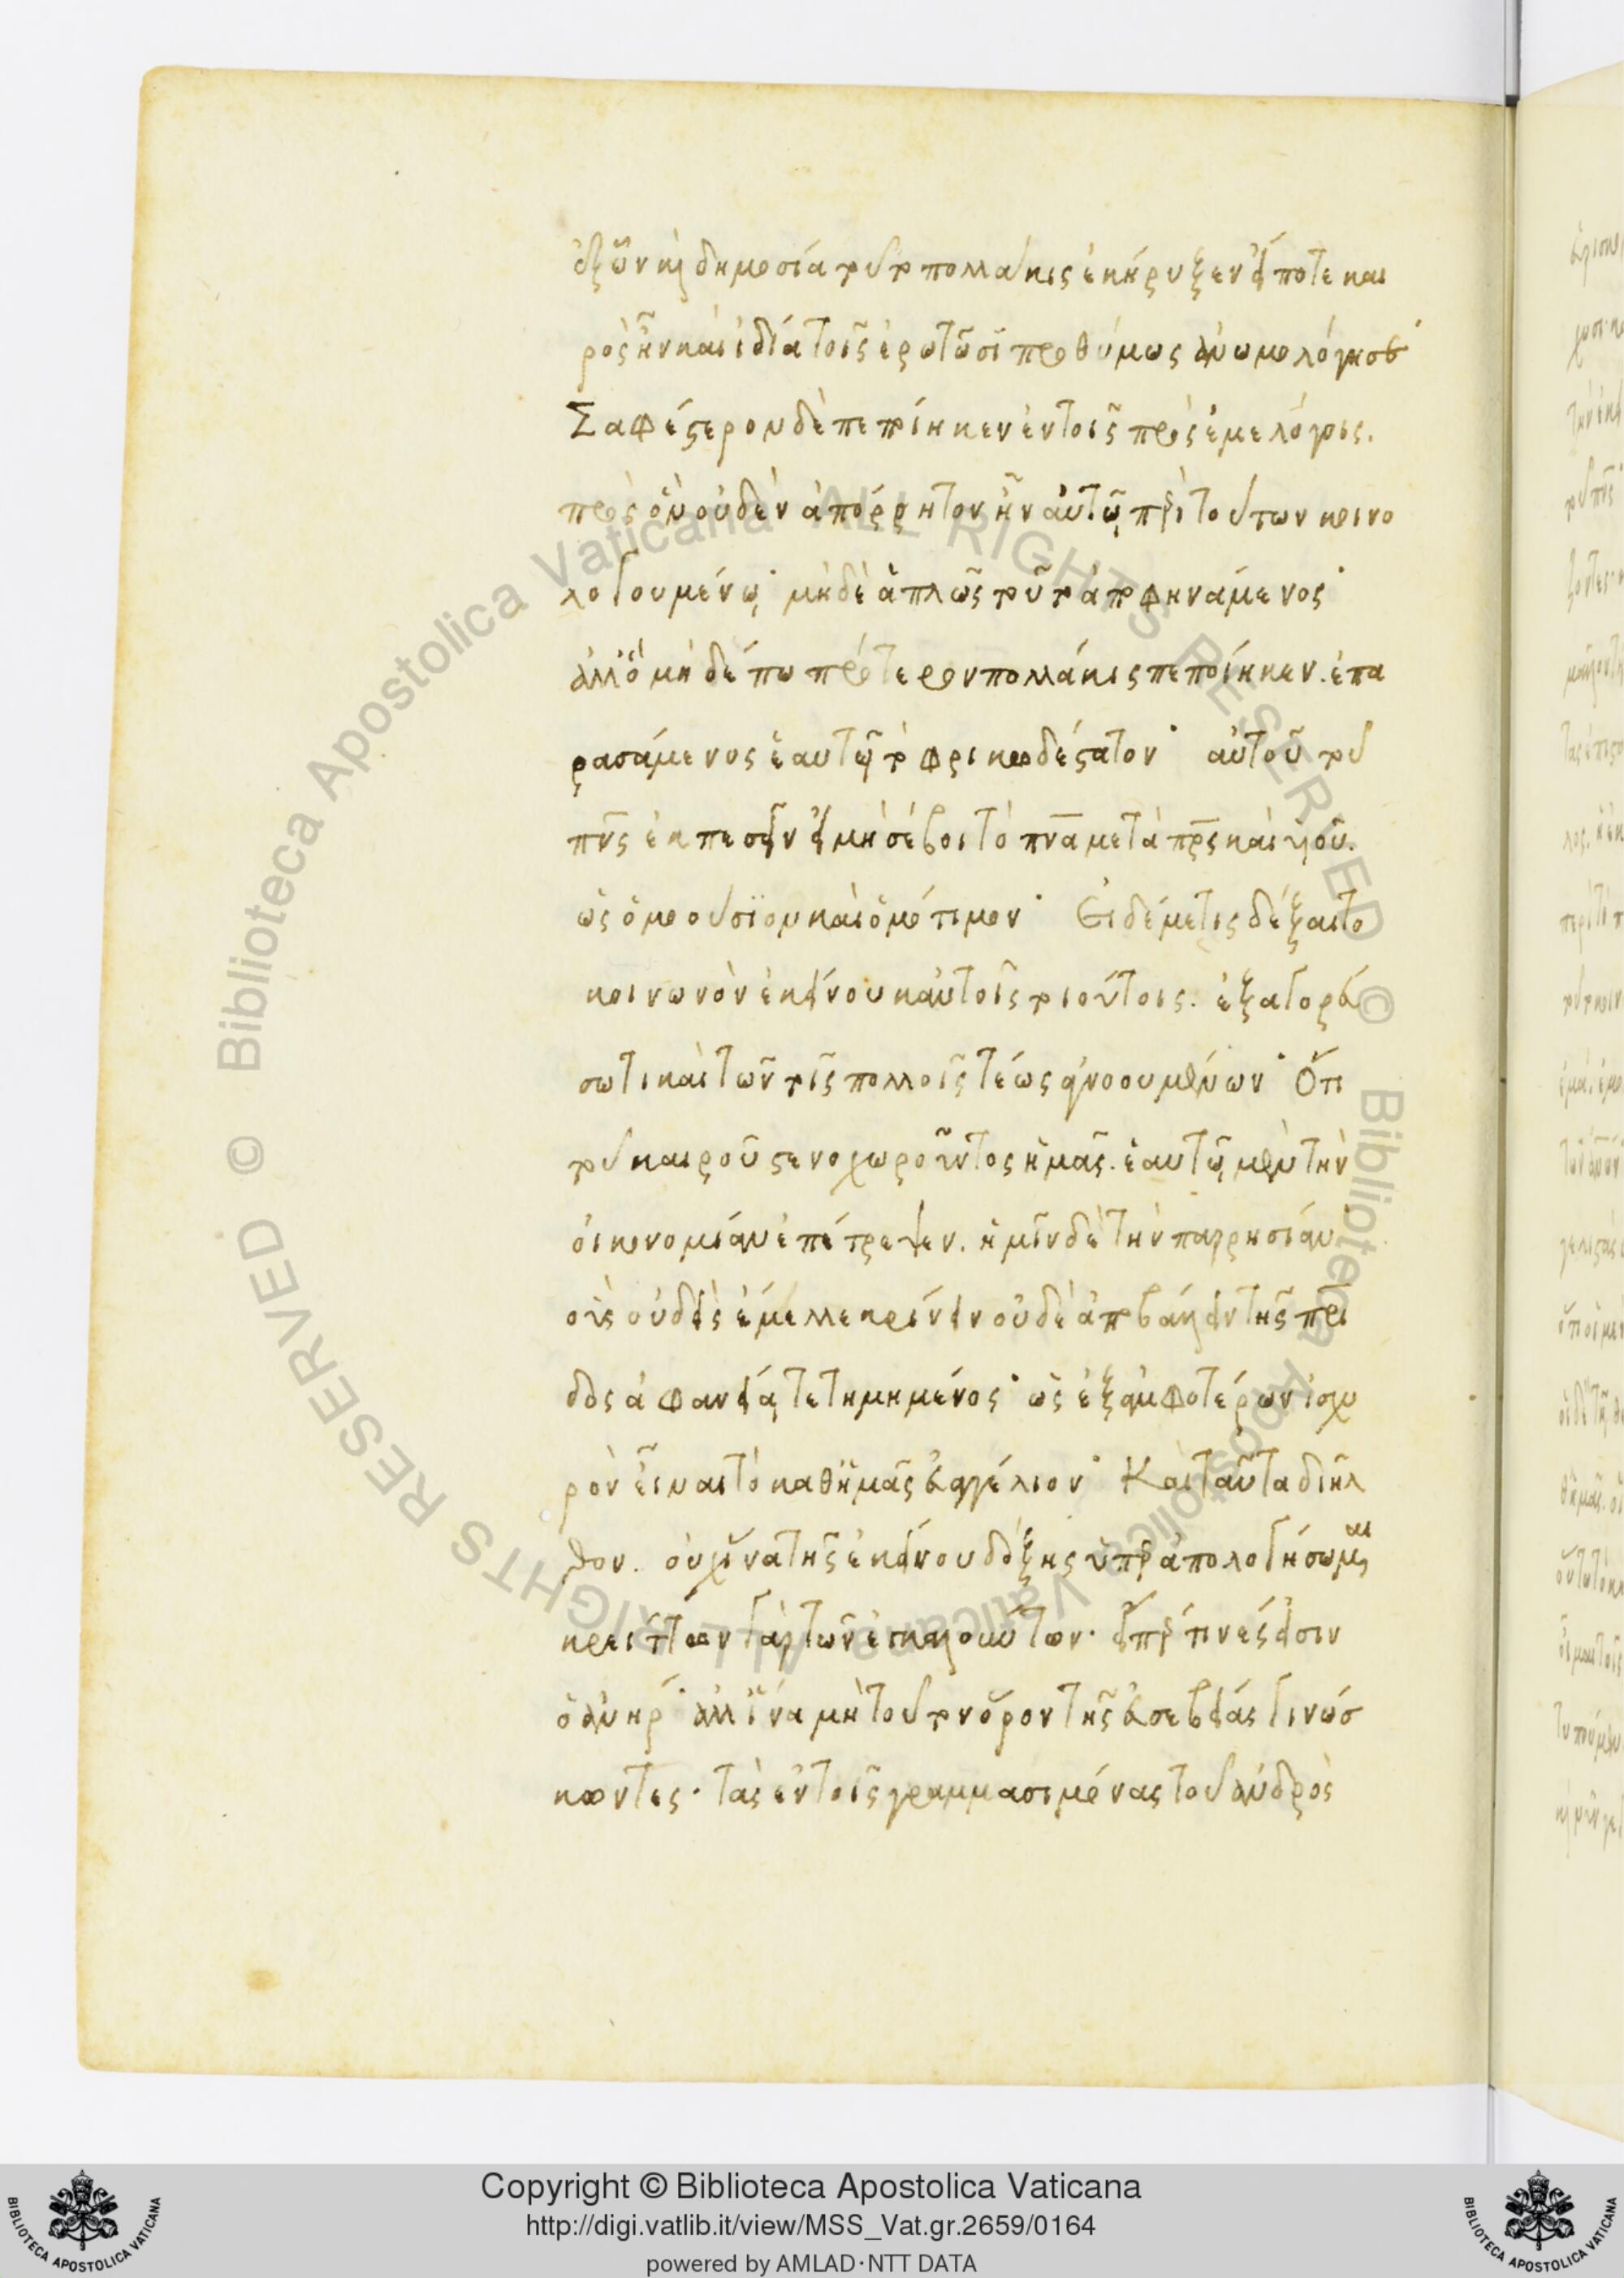 ἐξ ὧν καὶ δημοσία τοῦτο πολλάκις ἐκήρυξεν εἴ ποτε και
ρὸς ἦν καὶ ἰδία τοῖς ἐρωτῶσι προθύμως ἀνωμολόγησεν·
Σαφέστερον δὲ πεποίηκεν ἐν τοῖς πρὸς ἐμὲ λόγοις.
πρὸς ὃν οὐδὲν ἀπόρρητον ἦν αὐτῷ περὶ τούτων κοινο
λογουμένῳ· μηδὲ ἁπλῶς τοῦτο ἀποφηνάμενος·
ἀλλ' ὃ μηδέπω πρότερον πολλάκις πεποίηκεν. ἐπα
ρασάμενος ἑαυτῷ τὸ φρικωδέστατον· αὐτοῦ τοῦ
πνς ἐκπεσεῖν εἰ μὴ σέβοι τὸ πνα μετὰ πρς καὶ υἱοῦ.
ὡς ὁμοούσϊον καὶ ὁμότιμον· Εἰ δέ με τις δέξαιτο
κοινωνὸν ἐκείνου κἀν τοῖς τοιούτοις. ἐξαγορεύ
σω τι καὶ τῶν τοῖς πολλοῖς τέως ἀγνοουμένων· Ὅτι
τοῦ καιροῦ στενοχωροῦντος ἡμᾶς. ἑαυτῷ μὲν τὴν
οἰκονομίαν ἐπέτρεψεν. ἡμῖν δὲ τὴν παρρησίαν·
οὓς οὐδεὶς ἔμελλε κρίνειν οὐδὲ ἀποβάλλειν τῆς πρι
δος ἀφανείᾳ τετημημένος· ὡς ἐξ ἀμφοτέρων ἰσχυ
ρὸν εἶναι τὸ καθ' ἡμᾶς εὐαγγέλιον· Καὶ ταῦτα διῆλ
θον. οὐχ ἵνα τῆς ἐκείνου δόξης ὑπὲρ ἀπολογήσωμαι
κρείττων γὰρ τῶν ἐγκαλούντων. εἴπερ τινές εἰσιν
ὁ ἀνήρ· ἀλλ' ἵνα μὴ τοῦτον ὅρον τῆς εὐσεβείας γινώσ
κοντες. τὰς ἐν τοῖς γράμμασι μόνας τοῦ ἀνδρὸς
Copyright © Biblioteca Apostolica Vaticana
http://digi.vatlib.it/view/MSS_Vat.gr.2659/0164
powered by AMLAD·NTT DATA